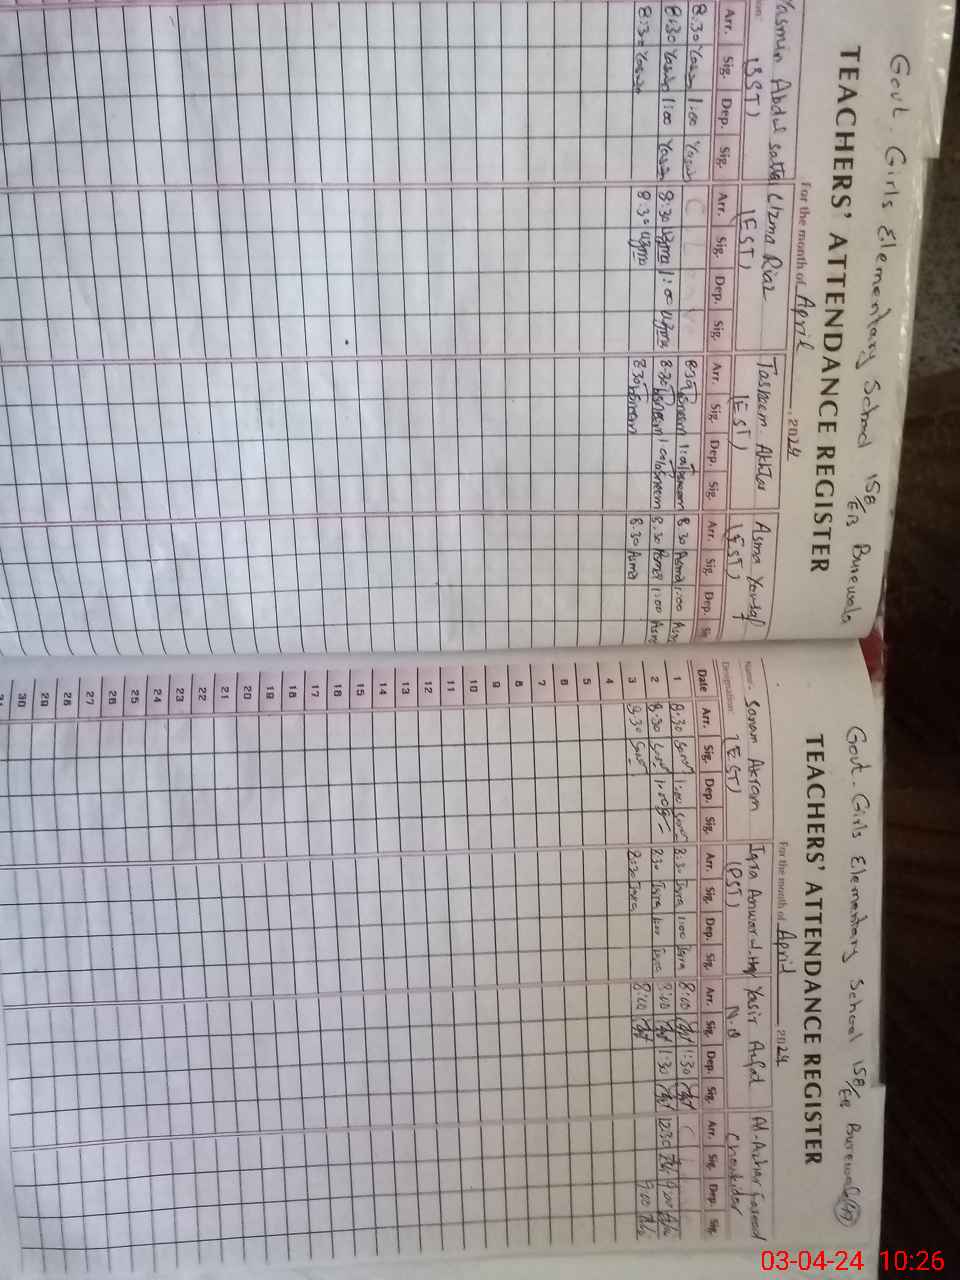 Govt. Girls Elementary School 158/EB Burewala
TEACHERS' ATTENDANCE REGISTER
For the month of April, 2024
Yasmin Abdul Sattar Uzma Riaz Tasneem Akhtar Asma Yousaf
(SST) (EST) (EST) (EST)
Arr. Sig. Dep. Sig. Arr. Sig. Dep. Sig. Arr. Sig. Dep. Sig. Arr. Sig. Dep.
8:30 Yasmin 1:00 Yasmin 8:30 Tasneem 1:00 Tasneem 8:30 Asma 1:00
8:30 Yasmin 1:00 Yasmin 8:30 Uzma 1:00 Uzma 8:30 Tasneem 1:00 Tasneem 8:30 Asma 1:00
8:30 Yasmin 8:30 Uzma 8:30 Tasneem 8:30 Asma
Govt. Girls Elementary School 158/EB Burewala
TEACHERS' ATTENDANCE REGISTER
For the month of April 2024
Name: Sanam Akram Iqra Anwar Yasir Aufat
Designation: (EST) (PST) N.Q Chowkidar
Date Arr. Sig. Dep. Sig. Arr. Sig. Dep. Sig. Arr. Sig. Dep. Sig. Arr. Sig. Dep. Sig.
1 8:30 1:00 8:30 Iqra 1:00 Iqra 8:00 1:30
2 8:30 1:00 8:30 Iqra 1:00 Iqra 8:00 1:30 12:30 9:00
3 8:30 8:30 Iqra 8:00 9:00
4
5
6
7
8
9
10
11
12
13
14
15
16
17
18
19
20
21
22
23
24
25
26
27
28
29
30
31
03-04-24 10:26